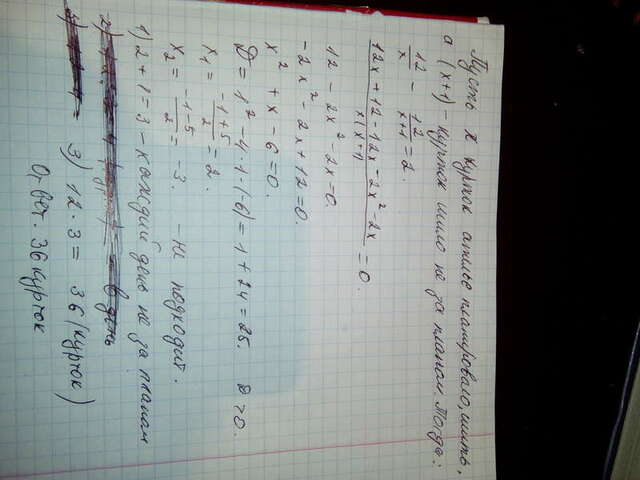 Пусть x курток ателье планировало шить,
а (x+1) - курток шило не за планом. Тогда:
12/x - 12/x+1 = 2.
12x + 12 - 12x - 2x² - 2x / x(x+1) = 0.
12 - 2x² - 2x = 0.
-2x² - 2x + 12 = 0.
x² + x - 6 = 0.
D = 1² - 4·1·(-6) = 1 + 24 = 25. D > 0.
x₁ = -1+5/2 = 2.
x₂ = -1-5/2 = -3. - не подходит.
1) 2+1=3 - каждый день не за планом
2) в день
3) 12·3 = 36 (курток)
Ответ. 36 курток